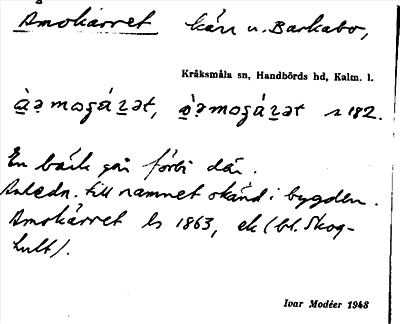 Åmokärret kärr u. Barkabo,
Kråksmåla sn, Handbörds hd, Kalm. l.
s 182.
En bäck går förbi där.
Anledn. till namnet okänd i bygden.
Åmokärret ls 1863, ek (bl. Skog-
hult).
Ivar Modéer 1948